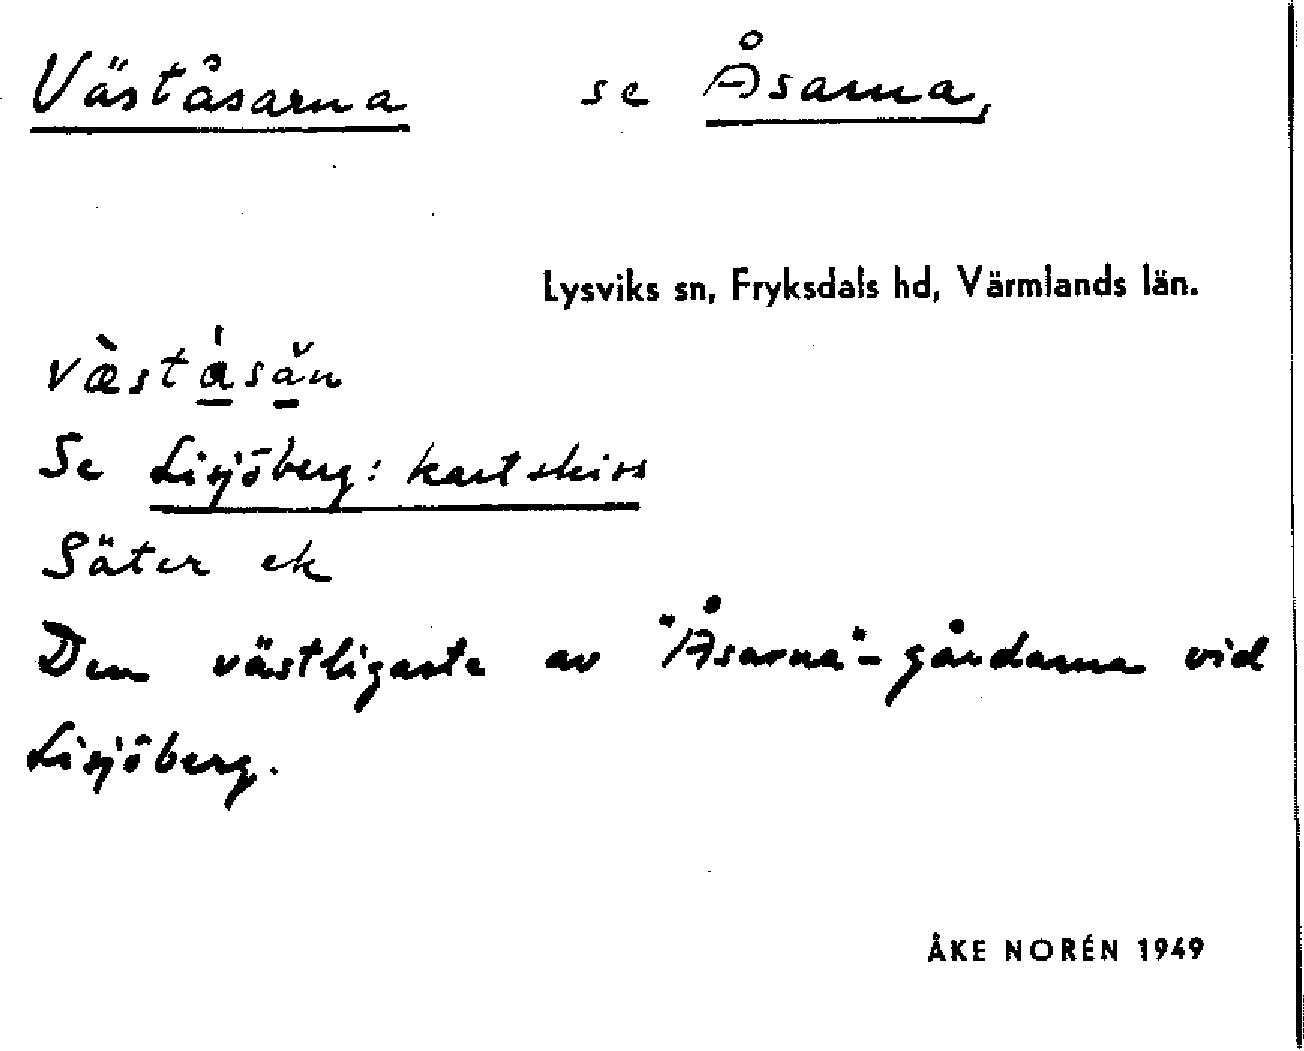 Väståsarna se Åsarna,
Lysviks sn, Fryksdals hd, Värmlands län.
Se Lisjöberg: kartskiss
Säter ek
Den västligaste av "Åsarna"-gårdarna vid
Lisjöberg.
ÅKE NORÉN 1949